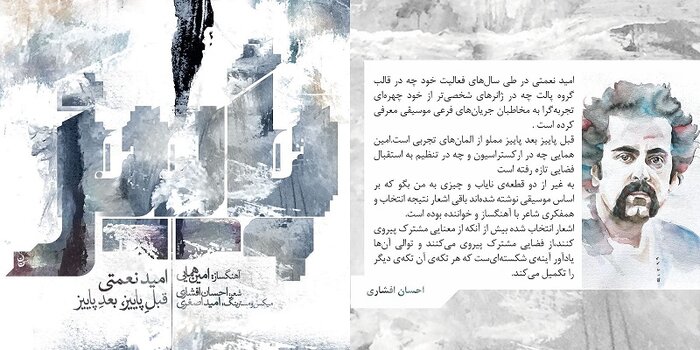 پاییز
آهنگساز، امین همایی
شعر، احسان افشاری
میکس و مسترینگ، امید اصغری
امید نعمتی
قبلِ پاییز، بعدِ پاییز
امید نعمتی در طی سال‌های فعالیت خود چه در قالب
گروه پالت چه در ژانرهای شخصی‌تر از خود چهره‌ای
تجربه‌گرا به مخاطبان جریان‌های فرعی موسیقی معرفی
کرده است .
قبل پاییز بعد پاییز مملو از المان‌های تجربی است.امین
همایی چه در ارکستراسیون و چه در تنظیم به استقبال
فضایی تازه رفته است
به غیر از دو قطعه‌ی نایاب و چیزی به من بگو که بر
اساس موسیقی نوشته شده‌اند باقی اشعار نتیجه انتخاب و
همفکری شاعر با آهنگساز و خواننده بوده است.
اشعار انتخاب شده بیش از آنکه از معنایی مشترک پیروی
کننداز فضایی مشترک پیروی می‌کنند و توالی آن‌ها
یادآور آینه‌ی شکسته‌ای‌ست که هر تکه‌ی آن تکه‌ی دیگر
را تکمیل می‌کند.
احسان افشاری